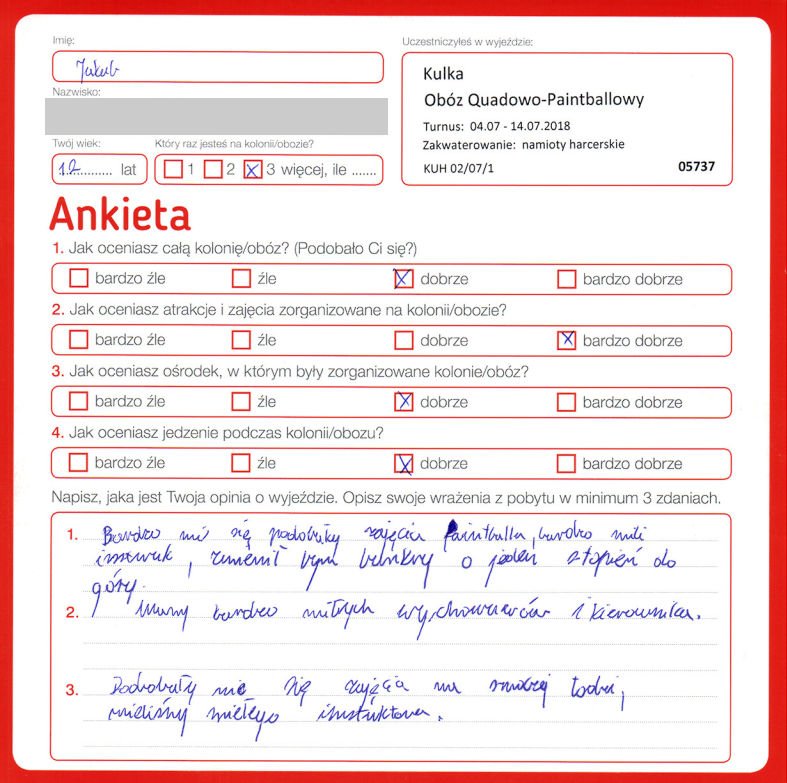 Imię:
Jakub
Nazwisko:
Twój wiek:
12 lat
Który raz jesteś na kolonii/obozie?
1 2 3 więcej, ile .......
Uczestniczyłeś w wyjeździe:
Kulka
Obóz Quadowo-Paintballowy
Turnus: 04.07 - 14.07.2018
Zakwaterowanie: namioty harcerskie
KUH 02/07/1 05737
Ankieta
1. Jak oceniasz całą kolonię/obóz? (Podobało Ci się?)
bardzo źle źle dobrze bardzo dobrze
2. Jak oceniasz atrakcje i zajęcia zorganizowane na kolonii/obozie?
bardzo źle źle dobrze bardzo dobrze
3. Jak oceniasz ośrodek, w którym były zorganizowane kolonie/obóz?
bardzo źle źle dobrze bardzo dobrze
4. Jak oceniasz jedzenie podczas kolonii/obozu?
bardzo źle źle dobrze bardzo dobrze
Napisz, jaka jest Twoja opinia o wyjeździe. Opisz swoje wrażenia z pobytu w minimum 3 zdaniach.
1. Bardzo mi się podobały zajęcia Paintballa, bardzo miły
zmienił bym o jeden stopień do
góry.
2. Mamy bardzo miłych wychowawców i kierownika.
3. Podobały mie się zajęcia na smoczej łodzi,
mieliśmy miełego instuktora.